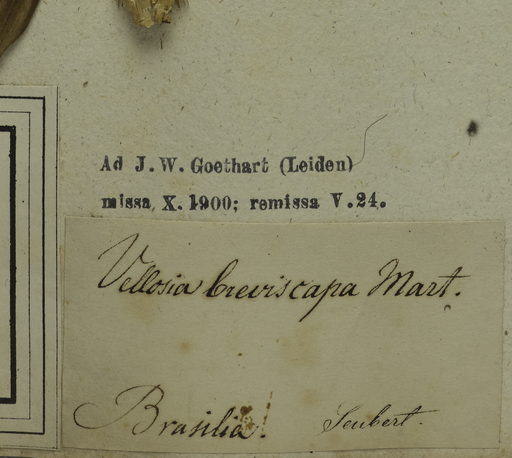 Ad J. W. Goethart (Leiden)
missa X. 1900; remissa V. 24.
Vellosia breviscapa Mart.
Brasilia. Seubert.